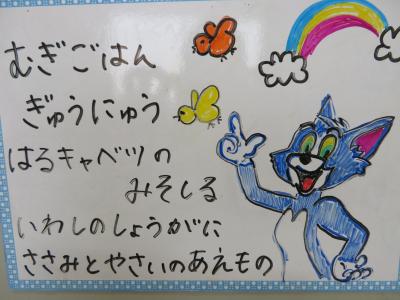 むぎごはん
ぎゅうにゅう
はるキャベツの
みそしる
いわしのしょうがに
ささみとやさいのあえもの